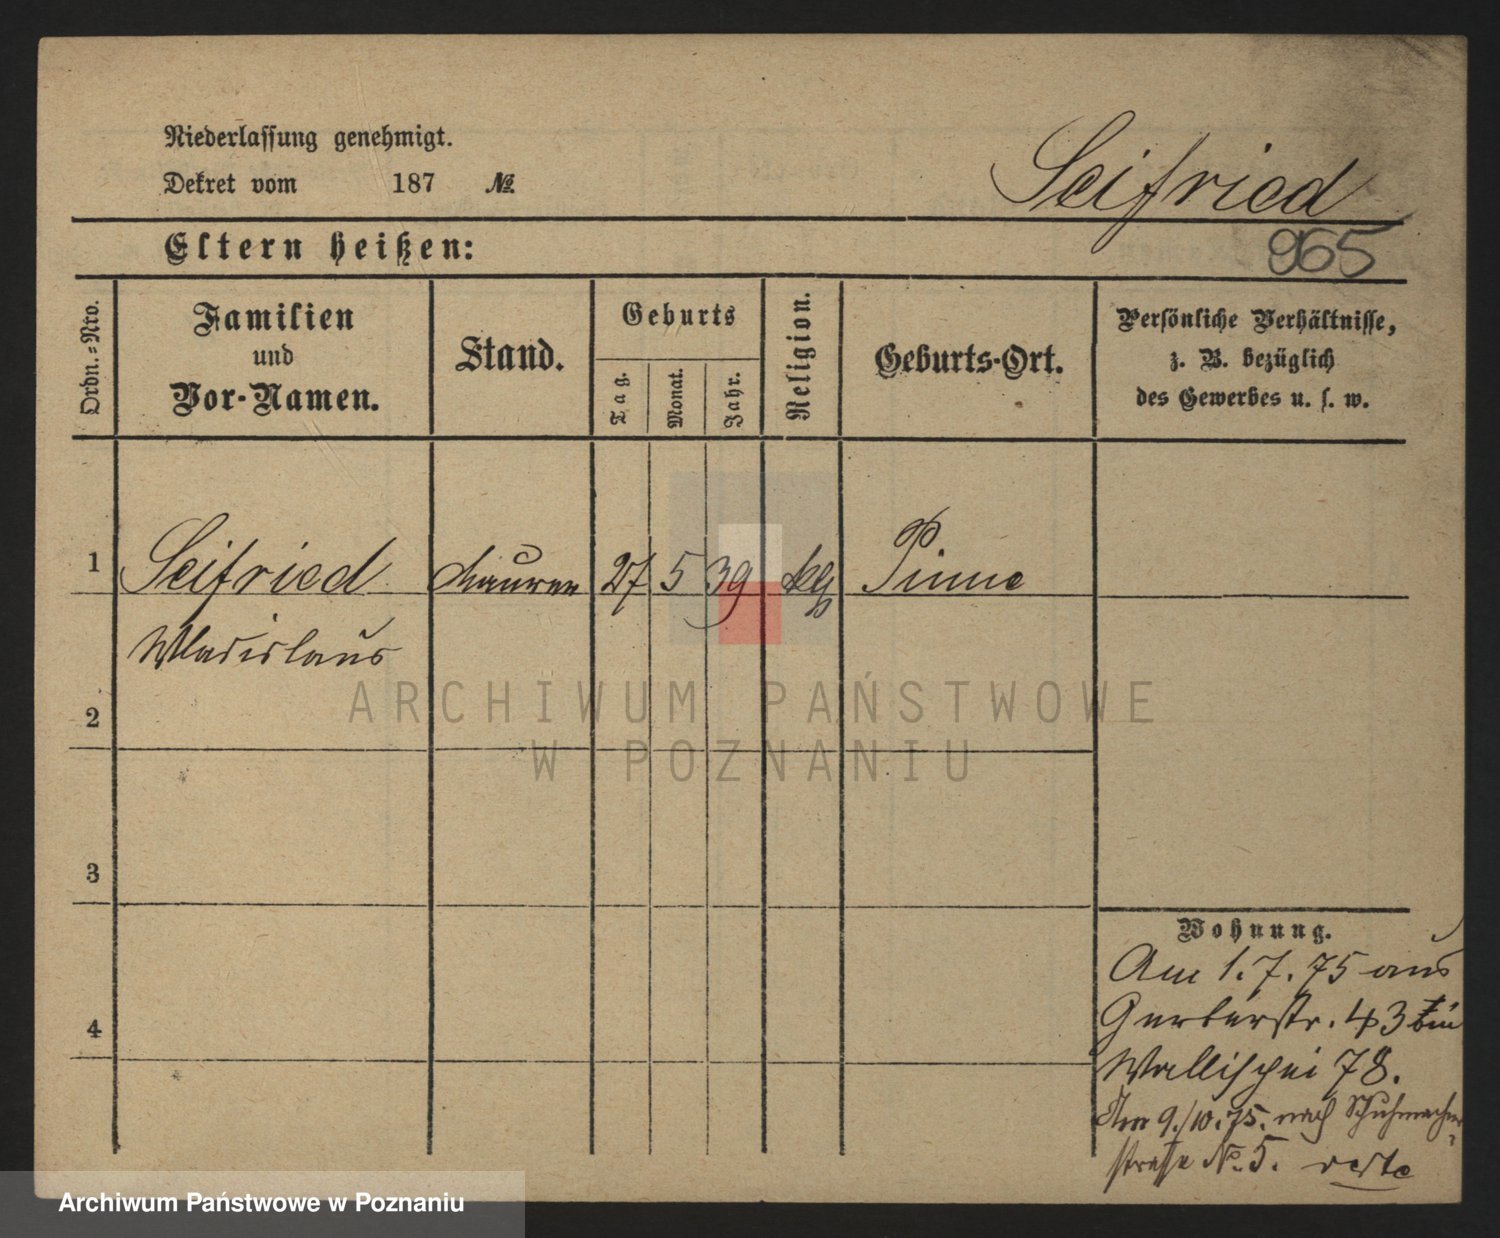 Niederlassung genehmigt.
Dekret vom 187 №
Seifried
965
Eltern heißen:
Ordn.-Nro.
Familien
und
Vor-Namen.
Stand.
Geburts
Tag.
Monat.
Jahr.
Religion.
Geburts-Ort.
Persönliche Verhältnisse,
z. B. bezüglich
des Gewerbes u. s. w.
1 Seifried Maurer 27 5 39 Pinne
Wladislaus
2
3
4
Wohnung.
Am 1. 7. 75 aus
Gerberstr. 43
Wallischei 78.
Am 9./10. 75. nach Schuhmacher
strasse No. 5.
ARCHIWUM PAŃSTWOWE
W POZNANIU
Archiwum Państwowe w Poznaniu